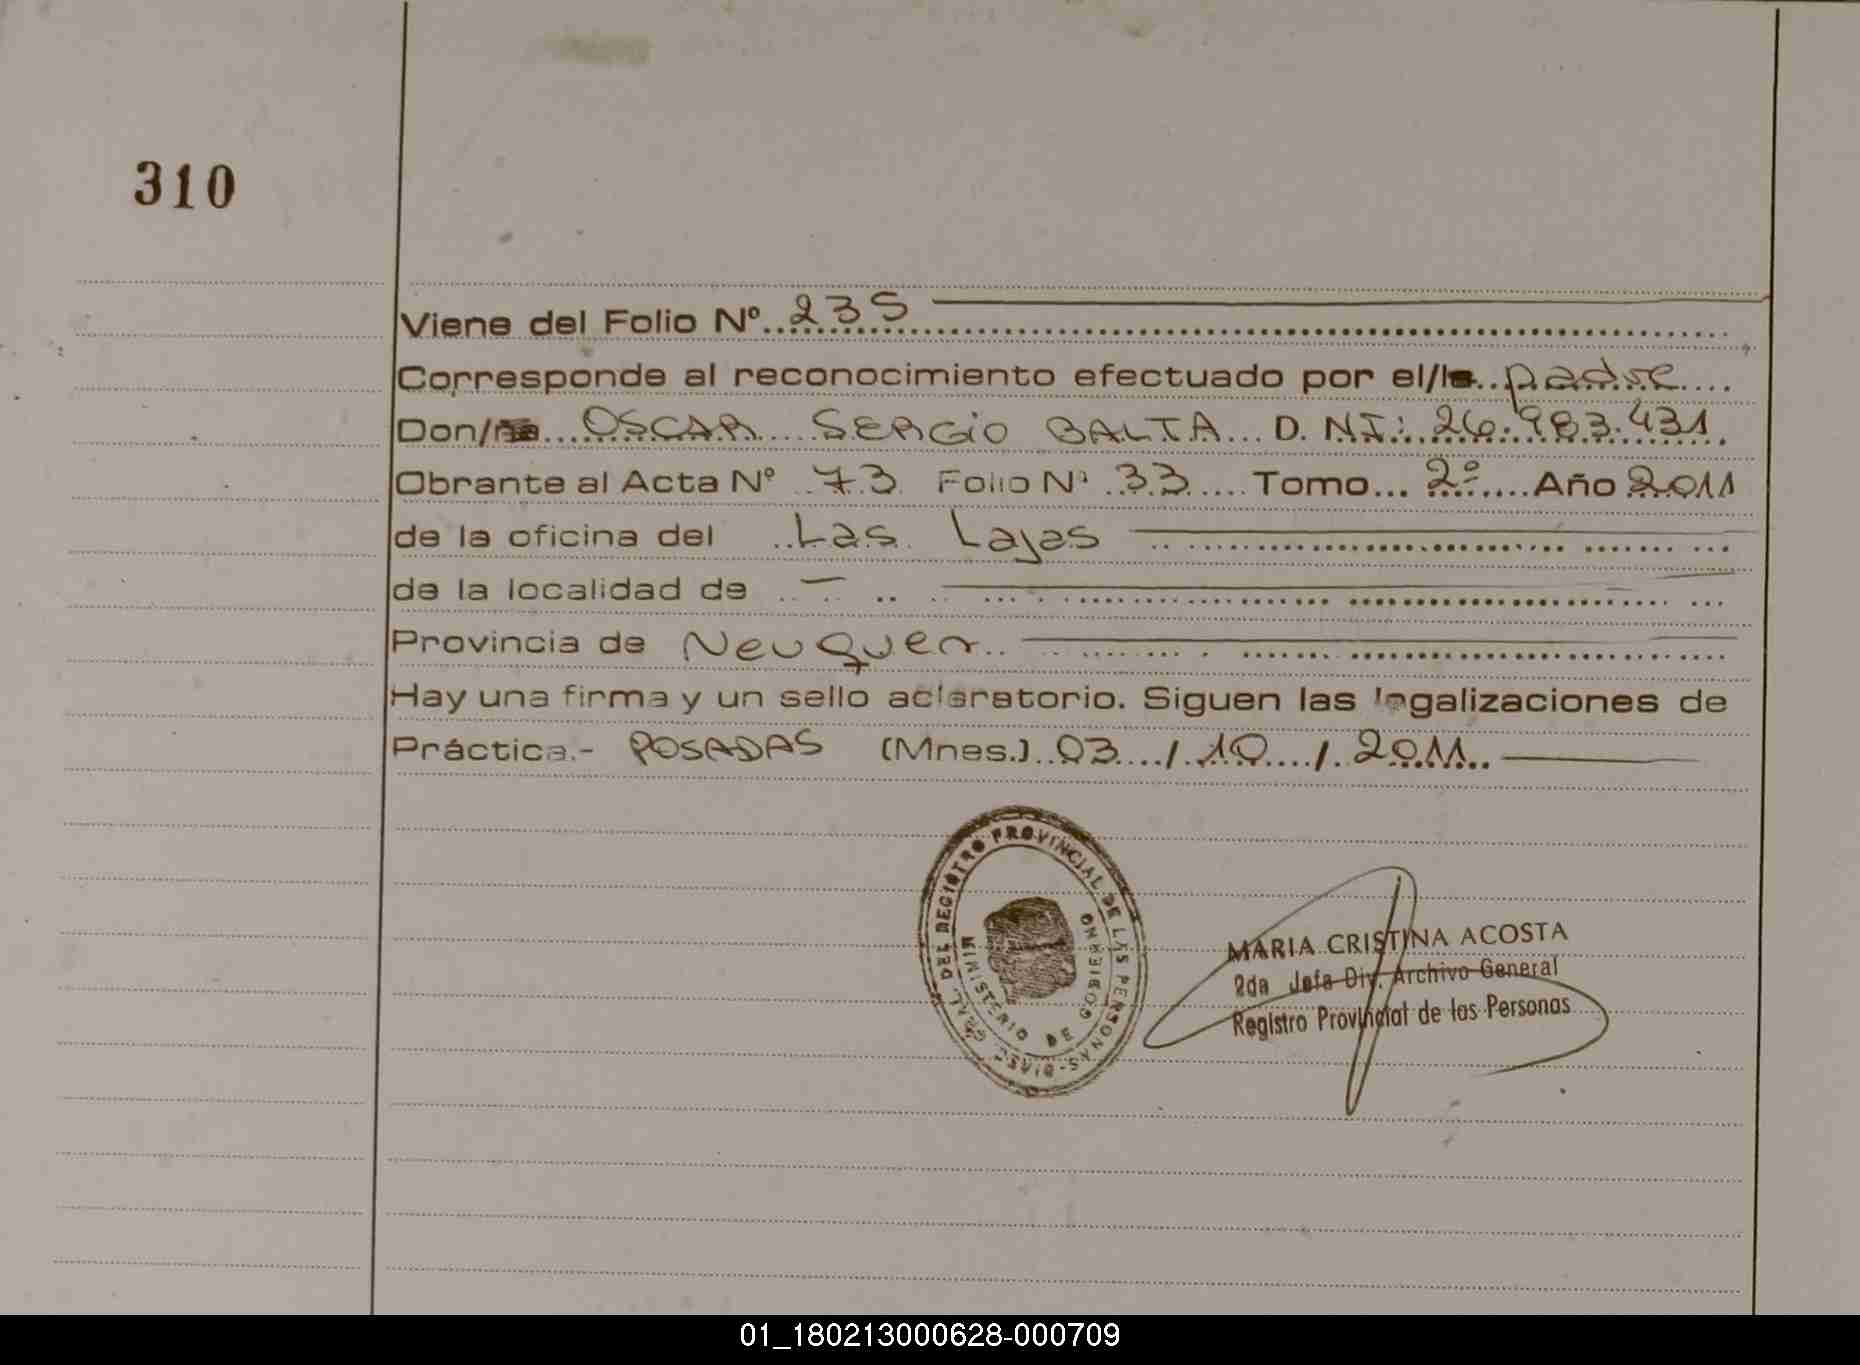 310
Viene del Folio Nº 235
Corresponde al reconocimiento efectuado por el/la padre
Don/ña OSCAR SERGIO BALTA D.NI: 26.983.431
Obrante al Acta Nº 73 Folio Nº 33 Tomo 2º Año 2011
de la oficina del Las Lajas
de la localidad de —
Provincia de Neuquen
Hay una firma y un sello aclaratorio. Siguen las legalizaciones de
Práctica.- POSADAS (Mnes.) 03 / 10 / 2011
GRAL. DEL REGISTRO PROVINCIAL DE LAS PERSONAS
MINISTERIO DE GOBIERNO
MARIA CRISTINA ACOSTA
2da Jefa Div. Archivo General
Registro Provincial de las Personas
01_180213000628-000709